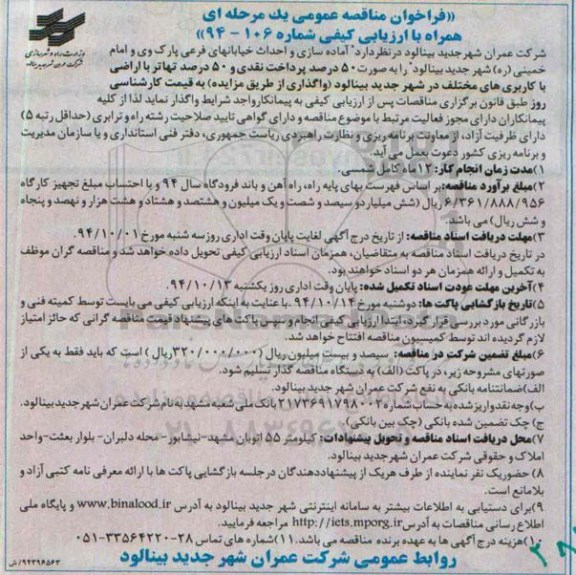 «فراخوان مناقصه عمومی یك مرحله ای
همراه با ارزیابی کیفی شماره ۱۰۶ - ۹۴»
شرکت عمران شهر جدید بینالود در نظر دارد" آماده سازی و احداث خیابانهای فرعی پارک وی و امام
خمینی (ره) شهر جدید بینالود" را به صورت ۵۰ درصد پرداخت نقدی و ۵۰ درصد تهاتر با اراضی
با کاربری های مختلف در شهر جدید بینالود (واگذاری از طریق مزایده) به قیمت کارشناسی
روز طبق قانون برگزاری مناقصات پس از ارزیابی کیفی به پیمانکار واجد شرایط واگذار نماید لذا از کلیه
پیمانکاران دارای مجوز فعالیت مرتبط با موضوع مناقصه و دارای گواهی تایید صلاحیت رشته راه و ترابری (حداقل رتبه ۵)
دارای ظرفیت آزاد، از معاونت برنامه ریزی و نظارت راهبردی ریاست جمهوری، دفتر فنی استانداری و یا سازمان مدیریت
و برنامه ریزی کشور دعوت بعمل می آید.
۱)مدت زمان انجام کار: ۱۲ ماه کامل شمسی.
۲)مبلغ برآورد مناقصه: بر اساس فهرست بهای پایه راه، راه آهن و باند فرودگاه سال ۹۴ و با احتساب مبلغ تجهیز کارگاه
۶/۳۶۱/۸۸۸/۹۵۶ ریال (شش میلیارد و سیصد و شصت و یک میلیون و هشتصد و هشتاد و هشت هزار و نهصد و پنجاه
و شش ریال) می باشد.
۳)مهلت دریافت اسناد مناقصه: از تاریخ درج آگهی لغایت پایان وقت اداری روز سه شنبه مورخ ۹۴/۱۰/۰۱.
در تاریخ دریافت اسناد مناقصه به متقاضیان، همزمان اسناد ارزیابی کیفی تحویل داده خواهد شد و مناقصه گران موظف
به تکمیل و ارائه همزمان هر دو اسناد خواهند بود.
۴)آخرین مهلت عودت اسناد تکمیل شده: پایان وقت اداری روز یکشنبه ۹۴/۱۰/۱۳.
۵)تاریخ بازگشایی پاکت ها: دوشنبه مورخ ۹۴/۱۰/۱۴. با عنایت به اینکه ارزیابی کیفی می بایست توسط کمیته فنی و
بازرگانی مورد بررسی قرار گیرد، ابتدا ارزیابی کیفی انجام و سپس پاکت های پیشنهاد قیمت مناقصه گرانی که حائز امتیاز
لازم گردیده اند توسط کمیسیون مناقصه افتتاح خواهد شد.
۶)مبلغ تضمین شرکت در مناقصه: سیصد و بیست میلیون ریال (۳۲۰/۰۰۰/۰۰۰ ریال) است که باید فقط به یکی از
صورتهای مشروحه زیر، در پاکت (الف) به دستگاه مناقصه گذار تسلیم شود.
الف)ضمانتنامه بانکی به نفع شرکت عمران شهر جدید بینالود.
ب)وجه نقد واریز شده به حساب شماره ۲۱۷۳۶۹۱۷۹۸۰۰۲ بانک ملی شعبه مشهد به نام شرکت عمران شهر جدید بینالود.
ج) چک تضمین شده بانکی (چک بین بانکی)
۷)محل دریافت اسناد مناقصه و تحویل پیشنهادات: کیلومتر ۵۵ اتوبان مشهد-نیشابور-محله دلبران- بلوار بعثت-واحد
املاک و حقوقی شرکت عمران شهر جدید بینالود.
۸)حضور یک نفر نماینده از طرف هریک از پیشنهاددهندگان در جلسه بازگشایی پاکت ها با ارائه معرفی نامه کتبی آزاد و
بلامانع است.
۹)برای دستیابی به اطلاعات بیشتر به سامانه اینترنتی شهر جدید بینالود به آدرس www.binalood.ir و پایگاه ملی
اطلاع رسانی مناقصات به آدرس http://iets.mporg.ir مراجعه فرمایید.
۱۰)هزینه درج آگهی ها به عهده برنده مناقصه می باشد. ۱۱)شماره های تماس ۲۸-۳۳۵۶۴۲۲۰-۰۵۱
روابط عمومی شرکت عمران شهر جدید بینالود